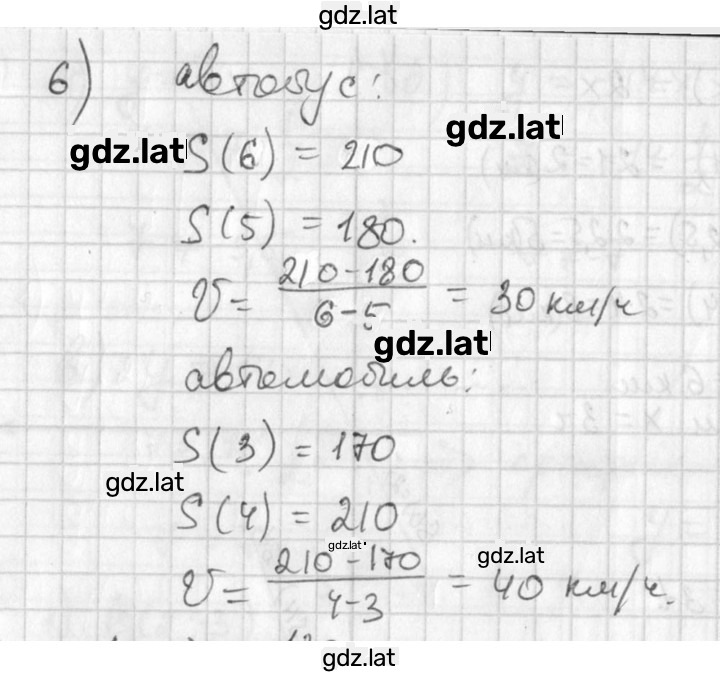 gdz.lat
6) автобус:
gdz.lat
gdz.lat S(6) = 210
S(5) = 180.
V = (210-180)/(6-5) = 30 км/ч
gdz.lat
автомобиль:
S(3) = 170
gdz.lat
S(4) = 210
gdz.lat
gdz.lat
V = (210-170)/(4-3) = 40 км/ч.
gdz.lat